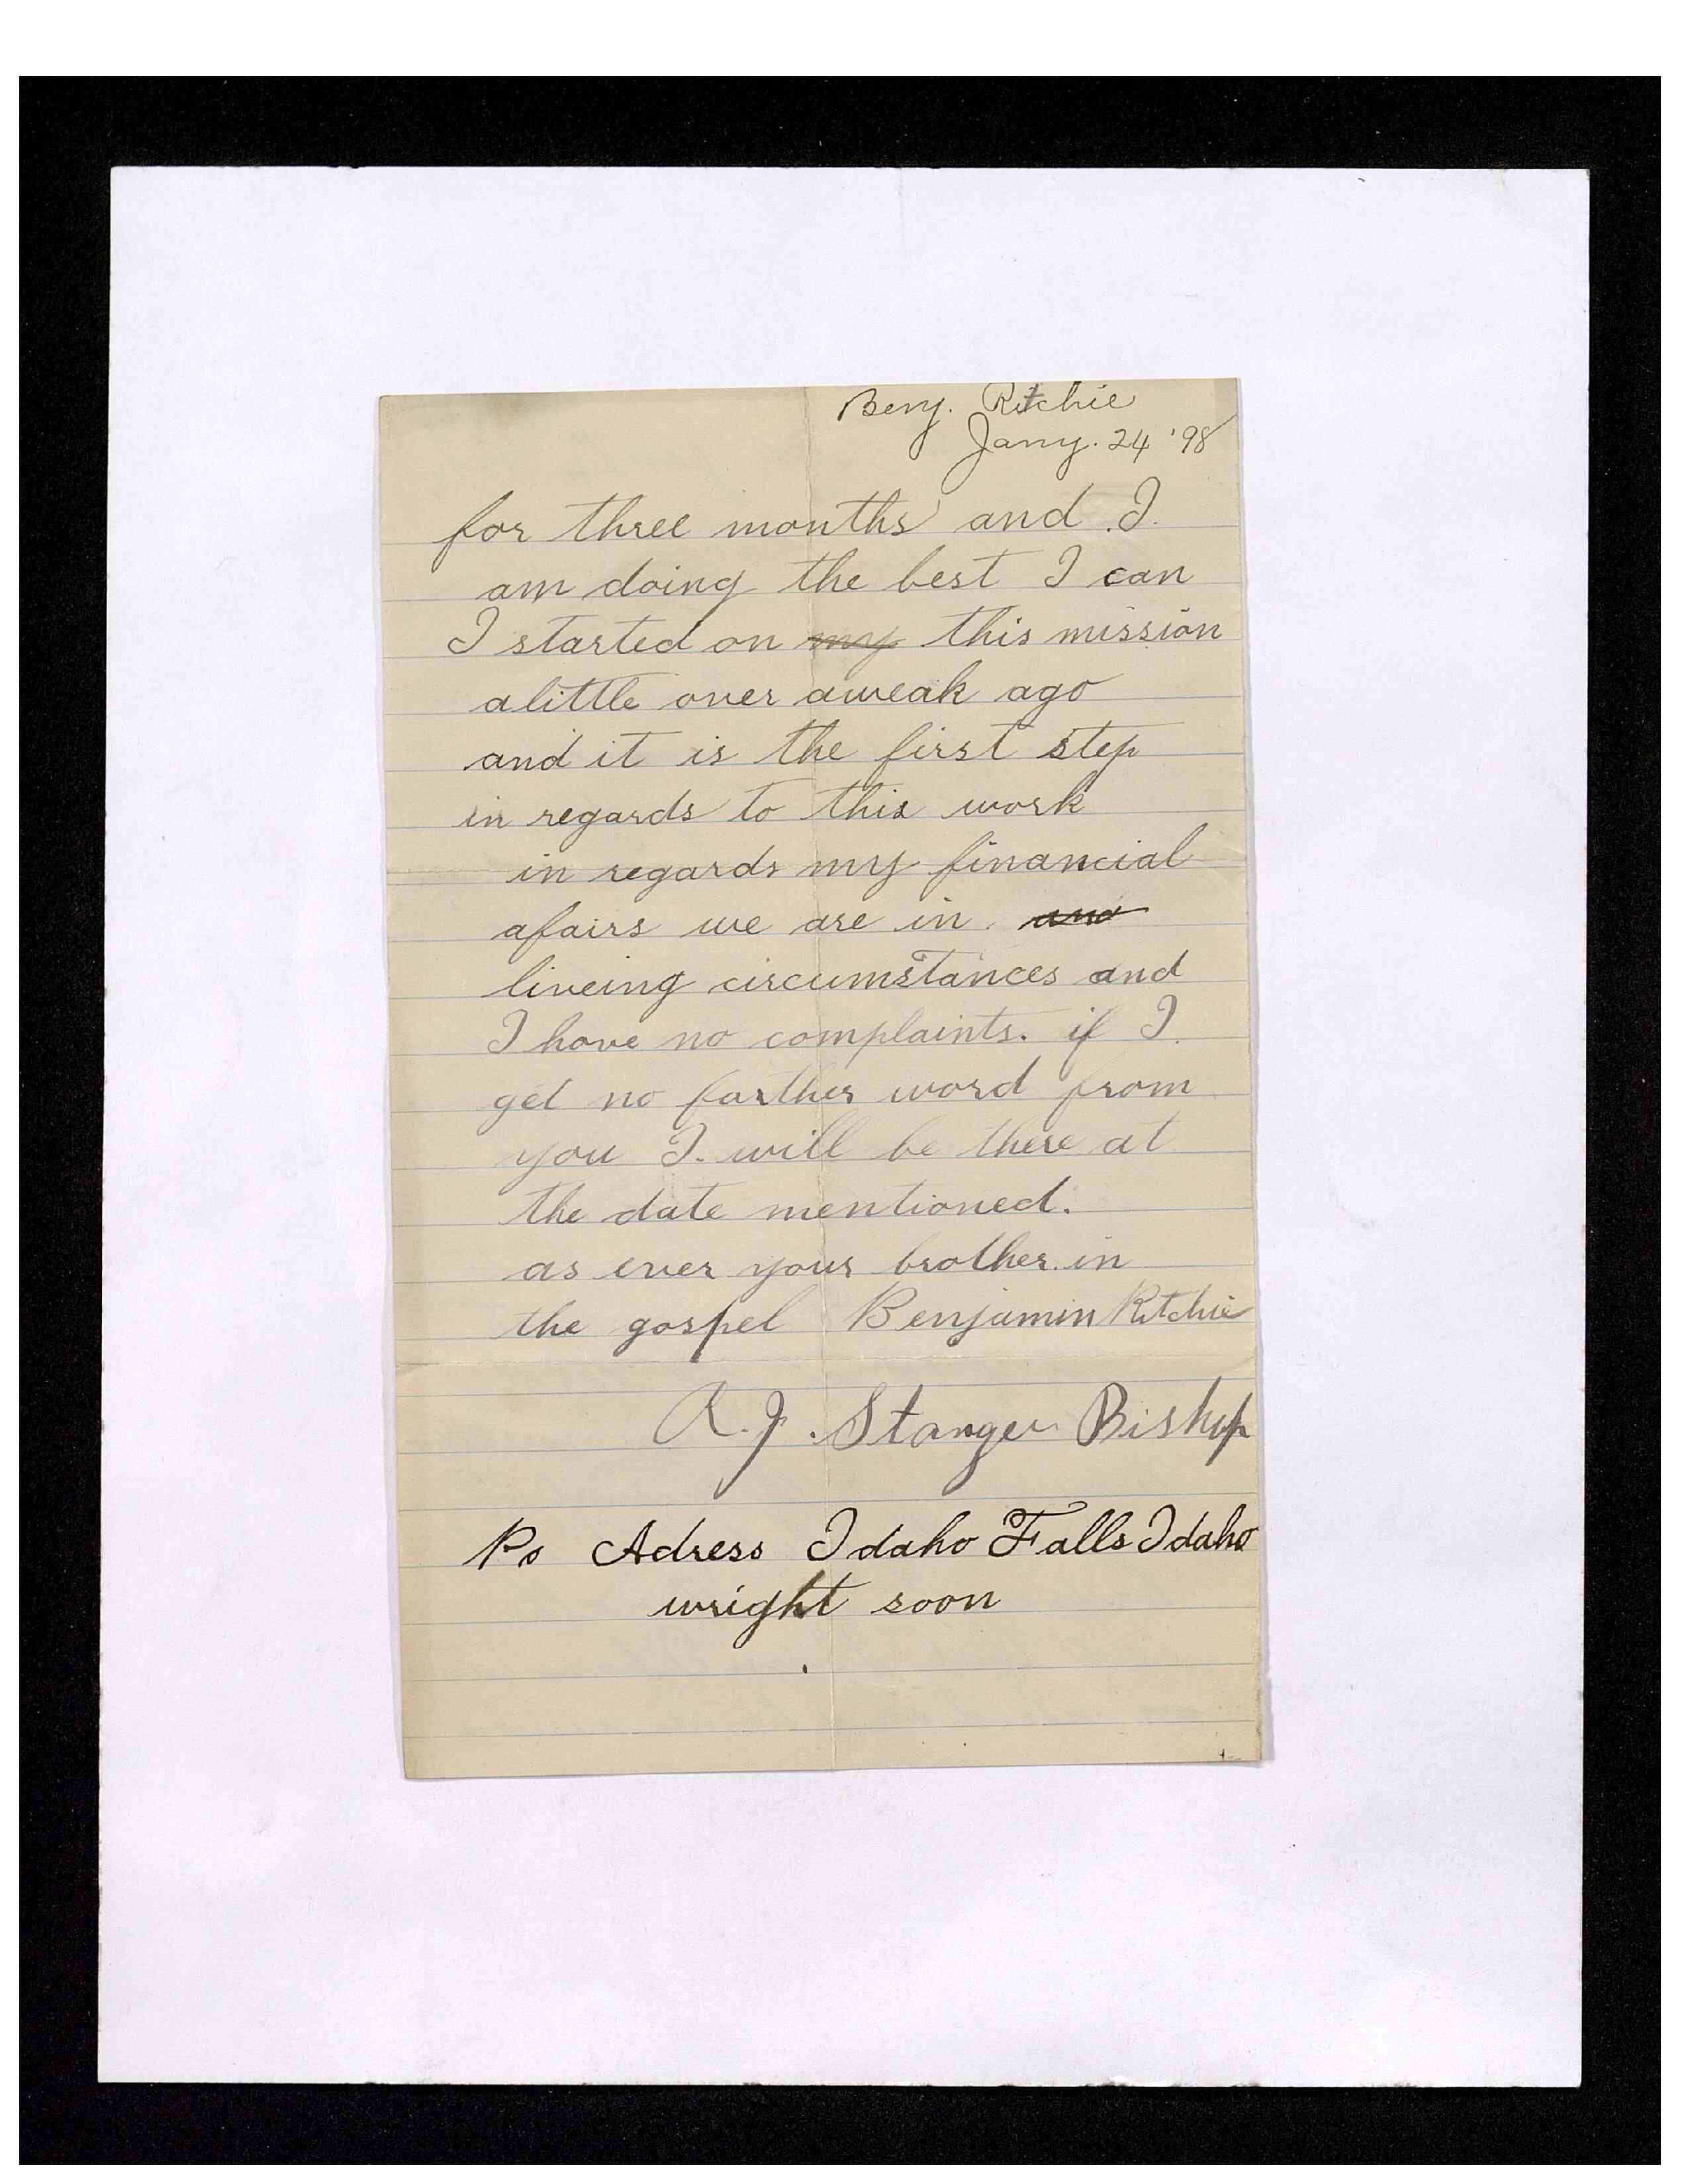 Benj. Ritchie
Jany. 24 '98
for three months and I
am doing the best I can
I started on my this mission
a little over aweak ago
and it is the first step
in regards to this work
in regards my financial
afairs we are in and
liveing circumstances and
I have no complaints. if I
get no farther word from
you I will be there at
the date mentioned.
as ever your brother in
the gospel Benjamin Ritchie
A. J. Stanger Bishop
Po Adress Idaho Falls Idaho
wright soon